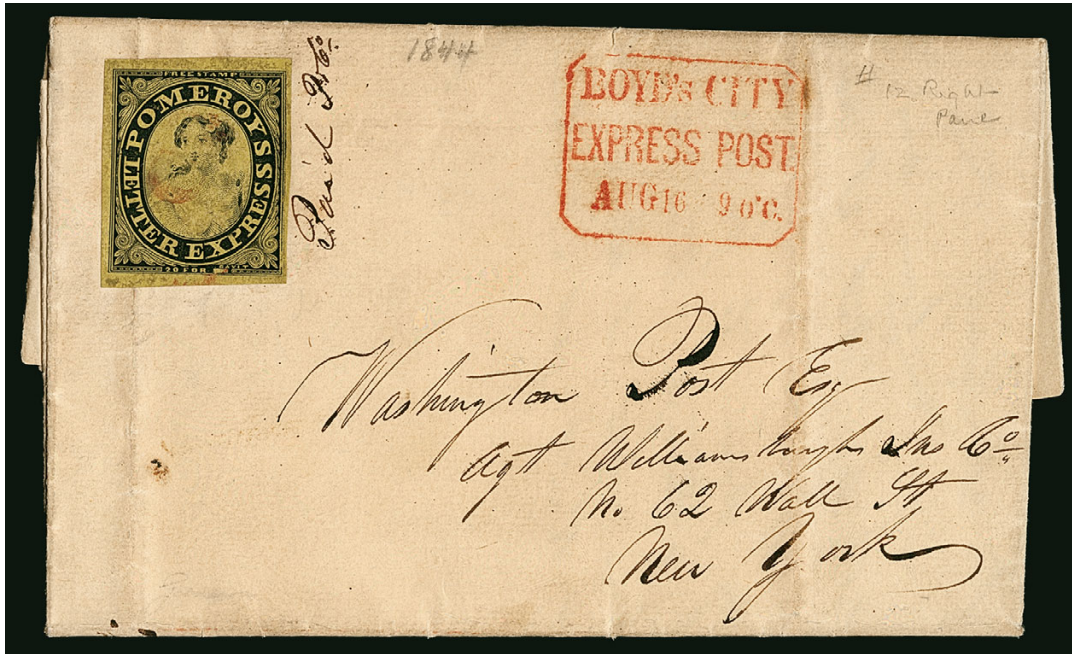 FREE STAMP
POMEROY'S LETTER EXPRESS
20 FOR
Paid
1844
BOYD's CITY
EXPRESS POST.
AUG 16 9 o'C.
12 Right
Pane
Washington Post Esq
Agt Williamsburgh Ins Co
No 62 Wall St
New York